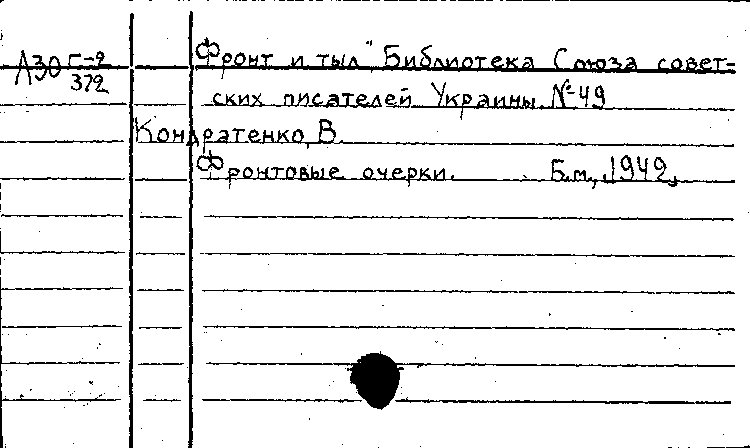 Фронт и тыл" Библиотека Союза совет-
А30 Г-2
372
ских писателей Украины №49
Кондратенко, В.
Фронтовые очерки. Б.м., 1942,